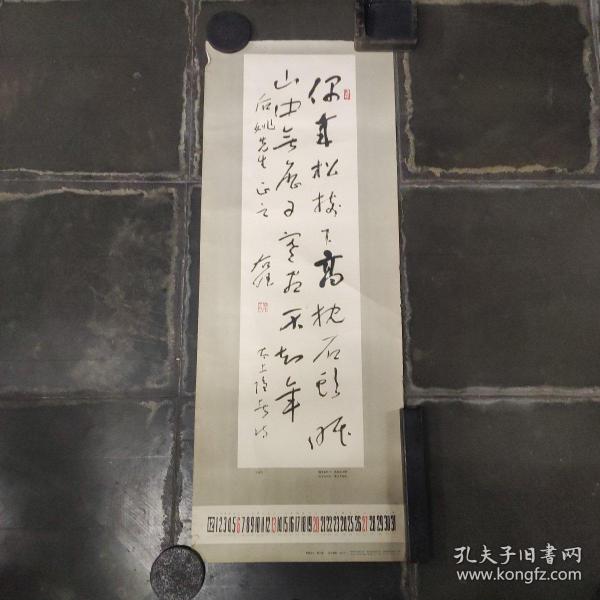 偶来松树下高枕石头眠
山中无历日寒尽不知年
后姚先生正之
右任
太上隐者诗
12 1 2 3 4 5 6 7 8 9 10 11 12 13 14 15 16 17 18 19 20 21 22 23 24 25 26 27 28 29 30 31
孔夫子旧书网
www.kongfz.com